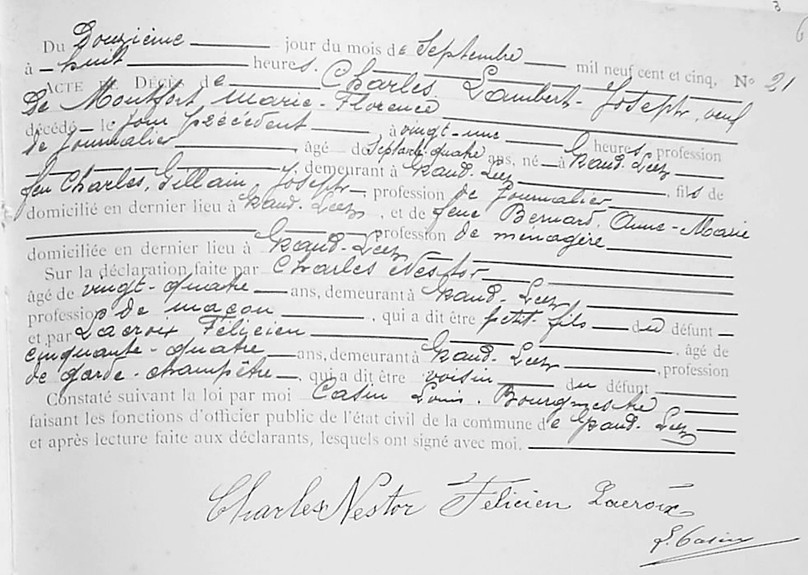 3
6
Du Douzième jour du mois de Septembre mil neuf cent et cinq, N° 21
à huit heures.
ACTE DE DÉCÈS de Charles Lambert-Joseph, veuf
De Montfort Marie-Florence
décédé le jour précédent, à vingt-une heures, profession
de journalier, âgé de Septante-quatre ans, né à Grand-Leez
, demeurant à Grand-Leez, fils de
feu Charles, Gillain Joseph, profession de journalier
domicilié en dernier lieu à Grand-Leez, et de feue Bernard, Anne-Marie
profession de ménagère
domiciliée en dernier lieu à Grand-Leez
Sur la déclaration faite par Charles Nestor
âgé de vingt-quatre ans, demeurant à Grand-Leez
profession de maçon, qui a dit être petit-fils du défunt
et par Lacroix Félicien, âgé de
cinquante-quatre ans, demeurant à Grand-Leez, profession
de garde-champêtre, qui a dit être voisin du défunt
Constaté suivant la loi par moi Casin Louis, Bourgmestre
faisant les fonctions d'officier public de l'état civil de la commune de Grand-Leez
et après lecture faite aux déclarants, lesquels ont signé avec moi.
Charles Nestor Félicien Lacroix
L. Casin